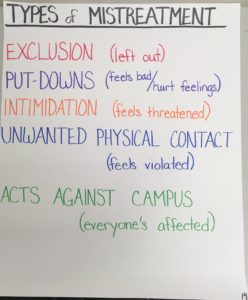 TYPES of MISTREATMENT
EXCLUSION (left out)
PUT-DOWNS (feels bad/hurt feelings)
INTIMIDATION (feels threatened)
UNWANTED PHYSICAL CONTACT
(feels violated)
ACTS AGAINST CAMPUS
(everyone's affected)